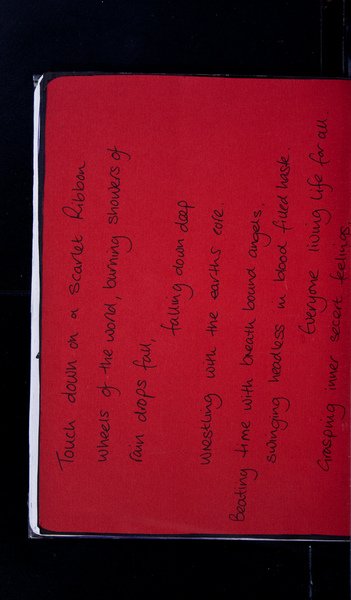 Touch down on a Scarlet Ribbon
wheels of the world, burning showers of
rain drops fall,
falling down deep
Wrestling with the earths core.
Beating time with breath bound angels.
swinging headless in blood filled haste.
Everyone living life for all.
Grasping inner secert feelings